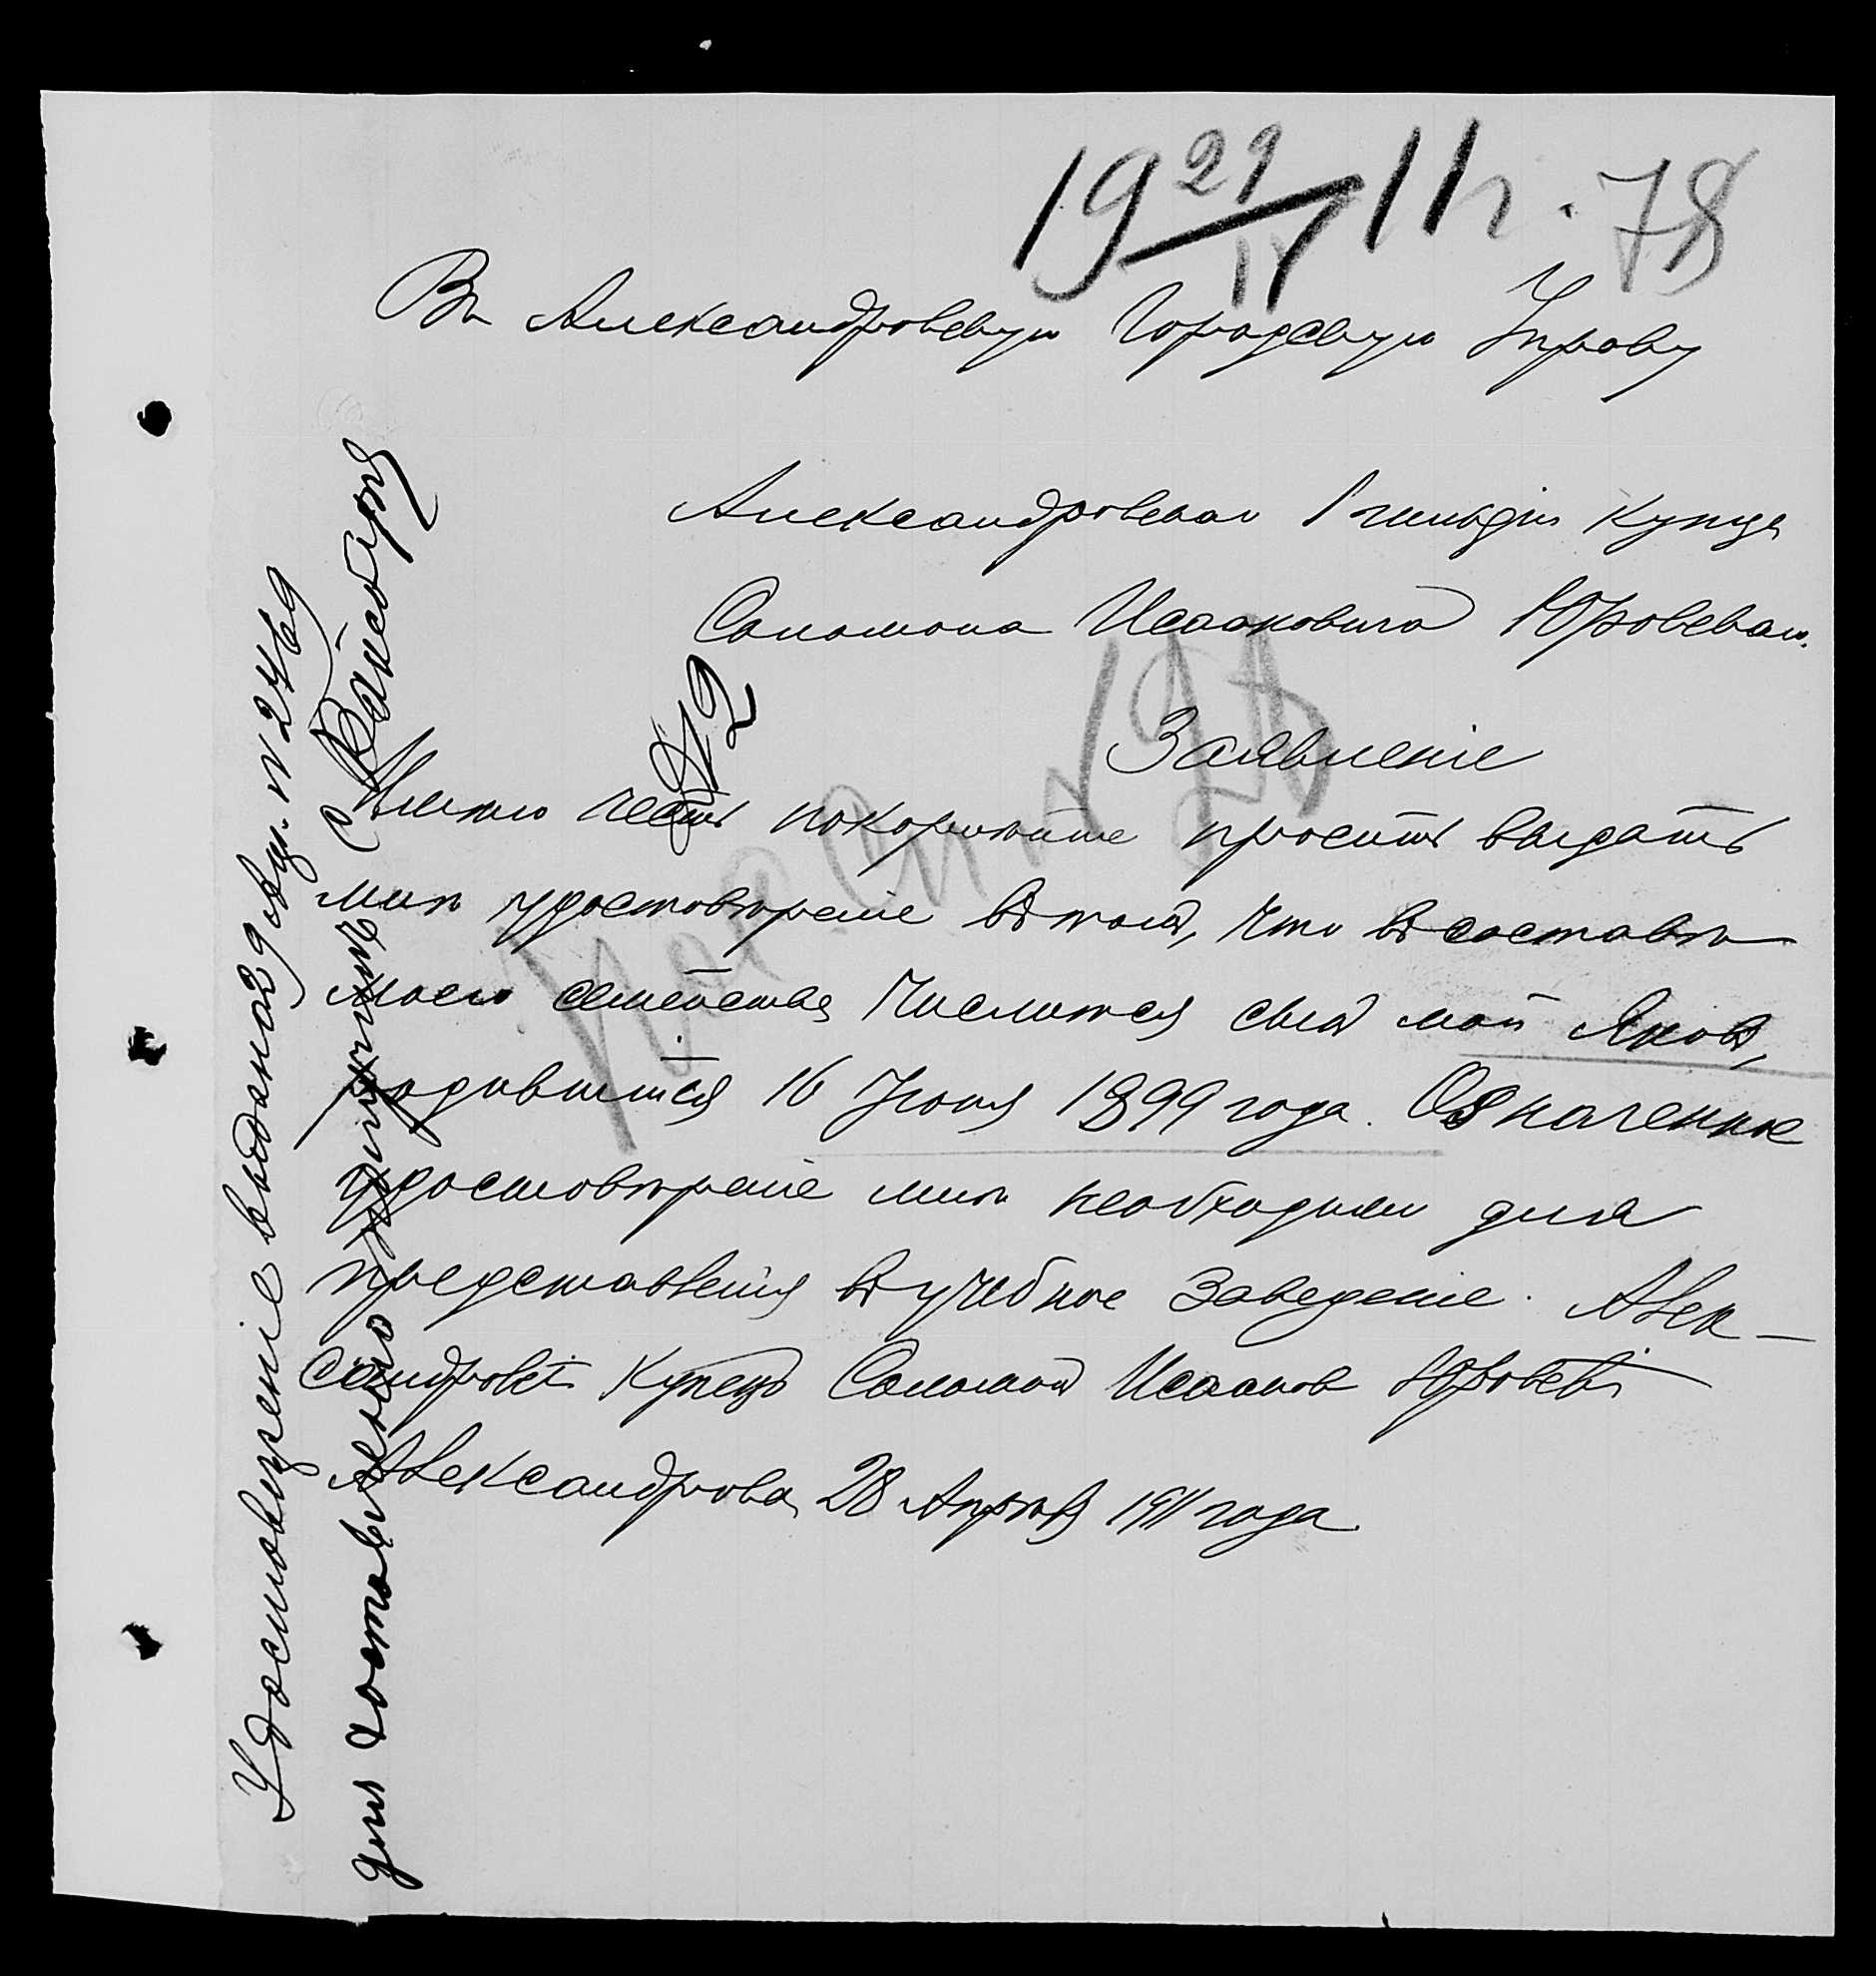 19 29/IV 11 г. 78
Въ Александровскую Городскую Управу
Александровскаго 1 гильдіи купца
Соломона Исааковича Юровскаго.
Заявленіе
Имѣю честь покорнѣйше просить выдать
мнѣ удостовѣреніе въ томъ, что въ составѣ
моего семейства числится сынъ мой Яковъ,
родившійся 16 Іюня 1899 года. Означенное
удостовѣреніе мнѣ необходимо для
представленія въ учебное заведеніе. Алек-
сандровскій Купецъ Соломонъ Исааковъ Юровскій
Александровск 28 Апрѣля 1911 года
Удостовѣреніе выдано 29 Апр. № 2769
для